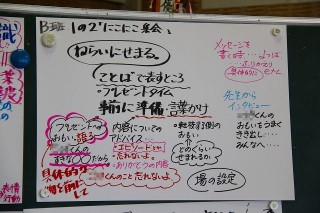 B班 1の2 にこにこ集会
ねらいにせまる。
ことばで表すところ
・プレゼントタイム
事前に準備
声かけ
メッセージを
書く時…よっぱ
ふりかえり
具体的に
プレゼントへの
おもい、語る
くん
すきな〇〇だから
具体的な
内容についての
アドバイス
・エピソードとか
・忘れないよ。
・ありがとうの内容
くんのこと忘れないよ
・転校する側の
おもい
どのくらい
せまれるか
先生から
インタビュー
くんの
おもいをうまく
ひき出し…
みんなへ…
場の設定